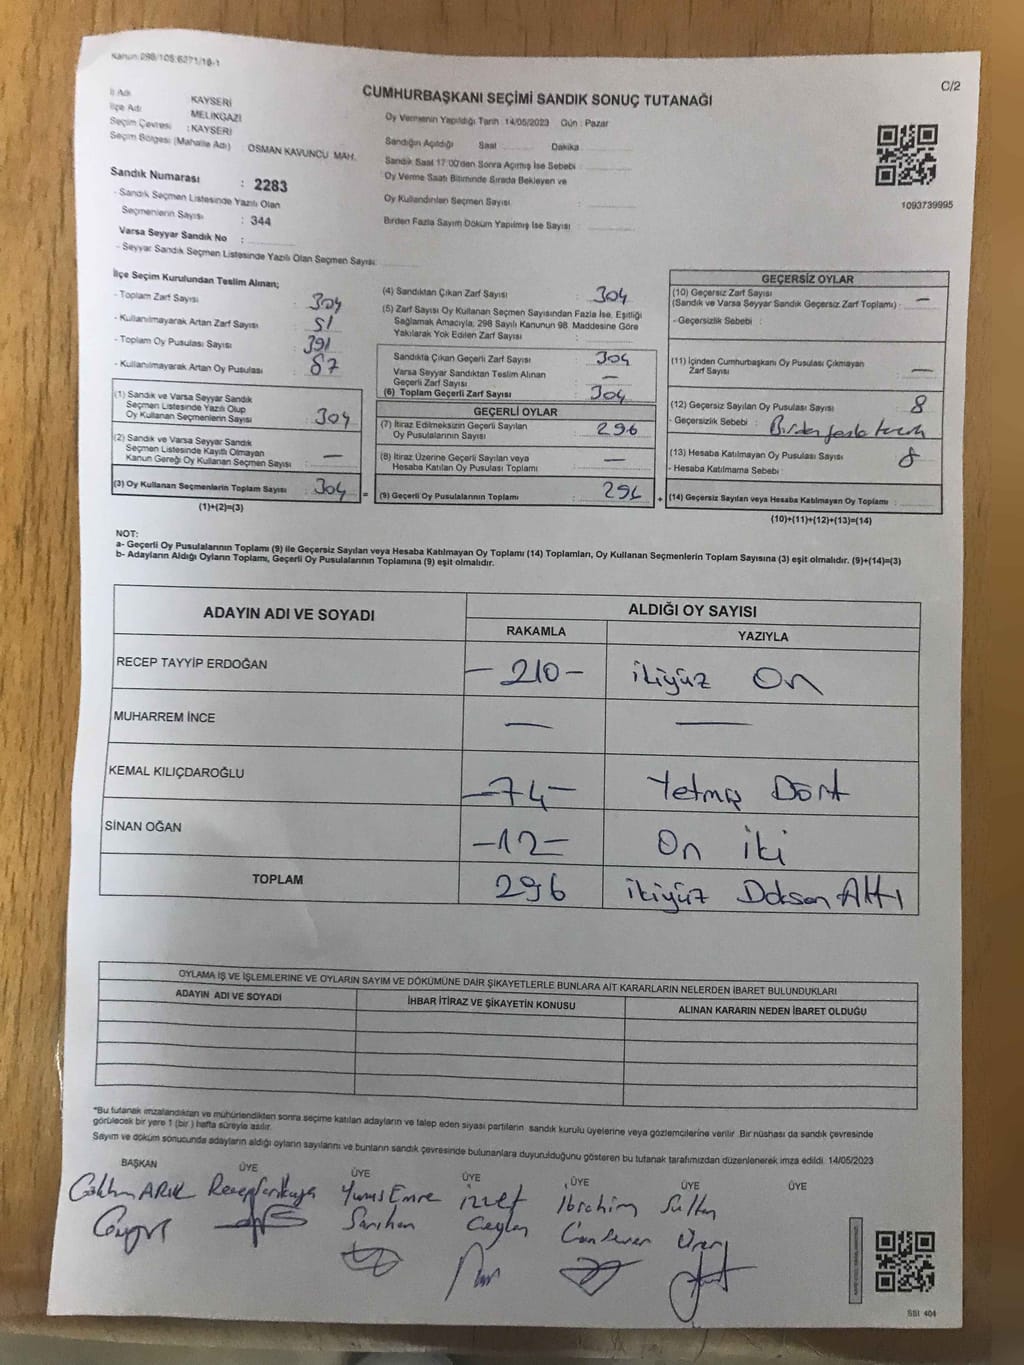 Kanun:298/105:6271/18-1
C/2
CUMHURBAŞKANI SEÇİMİ SANDIK SONUÇ TUTANAĞI
İl Adı KAYSERİ
İlçe Adı MELİKGAZİ
Seçim Çevresi : KAYSERİ
Seçim Bölgesi (Mahalle Adı) : OSMAN KAVUNCU MAH.
Sandık Numarası : 2283
- Sandık Seçmen Listesinde Yazılı Olan
Seçmenlerin Sayısı : 344
Varsa Seyyar Sandık No :
- Seyyar Sandık Seçmen Listesinde Yazılı Olan Seçmen Sayısı:
Oy Vermenin Yapıldığı Tarih : 14/05/2023 Gün : Pazar
Sandığın Açıldığı Saat Dakika
Sandık Saat 17:00'den Sonra Açılmış İse Sebebi
Oy Verme Saati Bitiminde Sırada Bekleyen ve
Oy Kullandırılan Seçmen Sayısı :
Birden Fazla Sayım Döküm Yapılmış İse Sayısı :
1093739995
İlçe Seçim Kurulundan Teslim Alınan;
- Toplam Zarf Sayısı
- Kullanılmayarak Artan Zarf Sayısı : 51
- Toplam Oy Pusulası Sayısı : 391
- Kullanılmayarak Artan Oy Pusulası : 87
(1) Sandık ve Varsa Seyyar Sandık
Seçmen Listesinde Yazılı Olup
Oy Kullanan Seçmenlerin Sayısı : 304
(2) Sandık ve Varsa Seyyar Sandık
Seçmen Listesinde Kayıtlı Olmayan
Kanun Gereği Oy Kullanan Seçmen Sayısı : —
(3) Oy Kullanan Seçmenlerin Toplam Sayısı : 304 =
(1)+(2)=(3)
(4) Sandıktan Çıkan Zarf Sayısı : 304
(5) Zarf Sayısı Oy Kullanan Seçmen Sayısından Fazla İse, Eşitliği
Sağlamak Amacıyla; 298 Sayılı Kanunun 98. Maddesine Göre
Yakılarak Yok Edilen Zarf Sayısı :
Sandıkta Çıkan Geçerli Zarf Sayısı : 304
Varsa Seyyar Sandıktan Teslim Alınan
Geçerli Zarf Sayısı : —
(6) Toplam Geçerli Zarf Sayısı : 304
GEÇERLİ OYLAR
(7) İtiraz Edilmeksizin Geçerli Sayılan
Oy Pusulalarının Sayısı : 296
(8) İtiraz Üzerine Geçerli Sayılan veya
Hesaba Katılan Oy Pusulası Toplamı : —
(9) Geçerli Oy Pusulalarının Toplamı : 296 +
GEÇERSİZ OYLAR
(10) Geçersiz Zarf Sayısı
(Sandık ve Varsa Seyyar Sandık Geçersiz Zarf Toplamı) : —
- Geçersizlik Sebebi :
(11) İçinden Cumhurbaşkanı Oy Pusulası Çıkmayan
Zarf Sayısı : —
(12) Geçersiz Sayılan Oy Pusulası Sayısı : 8
- Geçersizlik Sebebi : Birden fazla tercih
(13) Hesaba Katılmayan Oy Pusulası Sayısı : 8
- Hesaba Katılmama Sebebi :
(14) Geçersiz Sayılan veya Hesaba Katılmayan Oy Toplamı :
(10)+(11)+(12)+(13)=(14)
NOT:
a- Geçerli Oy Pusulalarının Toplamı (9) ile Geçersiz Sayılan veya Hesaba Katılmayan Oy Toplamı (14) Toplamları, Oy Kullanan Seçmenlerin Toplam Sayısına (3) eşit olmalıdır. (9)+(14)=(3)
b- Adayların Aldığı Oyların Toplamı, Geçerli Oy Pusulalarının Toplamına (9) eşit olmalıdır.
ADAYIN ADI VE SOYADI ALDIĞI OY SAYISI
RAKAMLA YAZIYLA
RECEP TAYYİP ERDOĞAN – 210 – ikiyüz On
MUHARREM İNCE — —
KEMAL KILIÇDAROĞLU – 74 – Yetmiş Dört
SİNAN OĞAN – 12 – On iki
TOPLAM 296 ikiyüz Doksan Altı
OYLAMA İŞ VE İŞLEMLERİNE VE OYLARIN SAYIM VE DÖKÜMÜNE DAİR ŞİKAYETLERLE BUNLARA AİT KARARLARIN NELERDEN İBARET BULUNDUKLARI
ADAYIN ADI VE SOYADI İHBAR İTİRAZ VE ŞİKAYETİN KONUSU ALINAN KARARIN NEDEN İBARET OLDUĞU
*Bu tutanak imzalandıktan ve mühürlendikten sonra seçime katılan adayların ve talep eden siyasi partilerin sandık kurulu üyelerine veya gözlemcilerine verilir. Bir nüshası da sandık çevresinde
görülecek bir yere 1 (bir ) hafta süreyle asılır.
Sayım ve döküm sonucunda adayların aldığı oyların sayılarını ve bunların sandık çevresinde bulunanlara duyurulduğunu gösteren bu tutanak tarafımızdan düzenlenerek imza edildi. 14/05/2023
BAŞKAN ÜYE ÜYE ÜYE ÜYE ÜYE ÜYE
Gökhan ARIK Yunus Emre izzet İbrahim Sultan
Sarıhan Ceylan
SSI 404